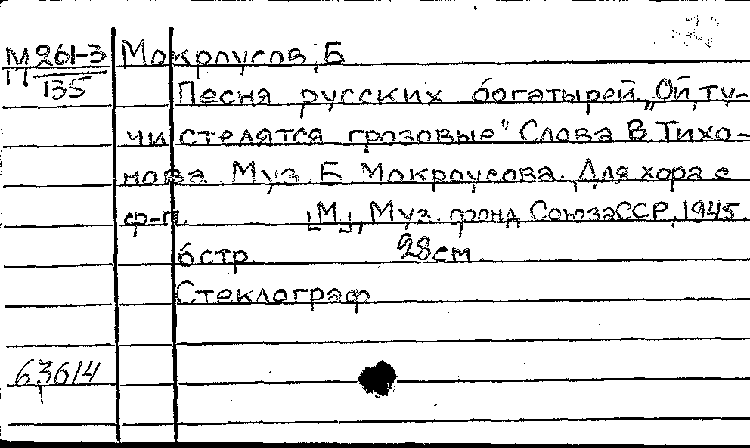 М 261-3
П 135
Мокроусов, Б
Песня русских богатырей. „Ой, ту-
чи стелятся грозовые" Слова В. Тихо-
нова. Муз. Б. Мокроусова. Для хора с
ф-п. [М], Муз. фонд Союза ССР, 1945
6 стр. 28 см.
Стеклограф
63614